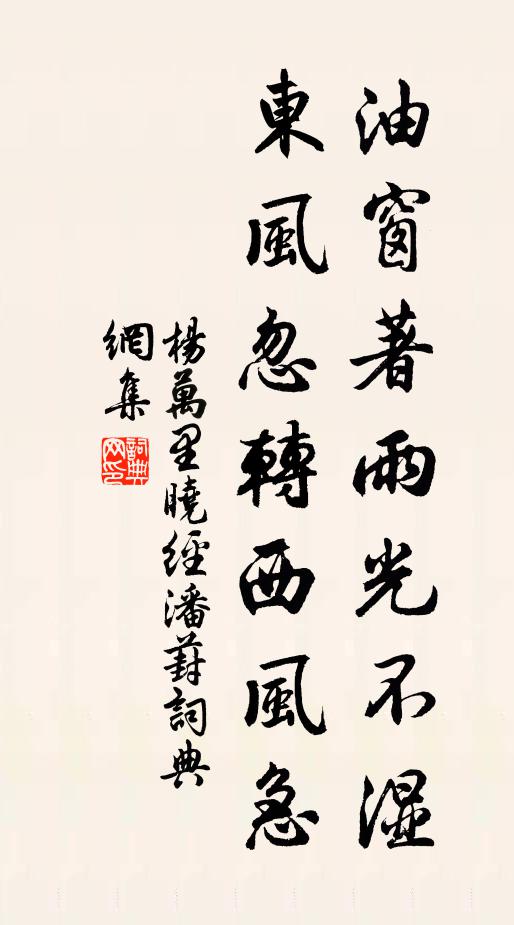 油窗著雨光不湿
東風忽轉西風急
楊萬里曉經潘葑詞典
網集
詞典網印